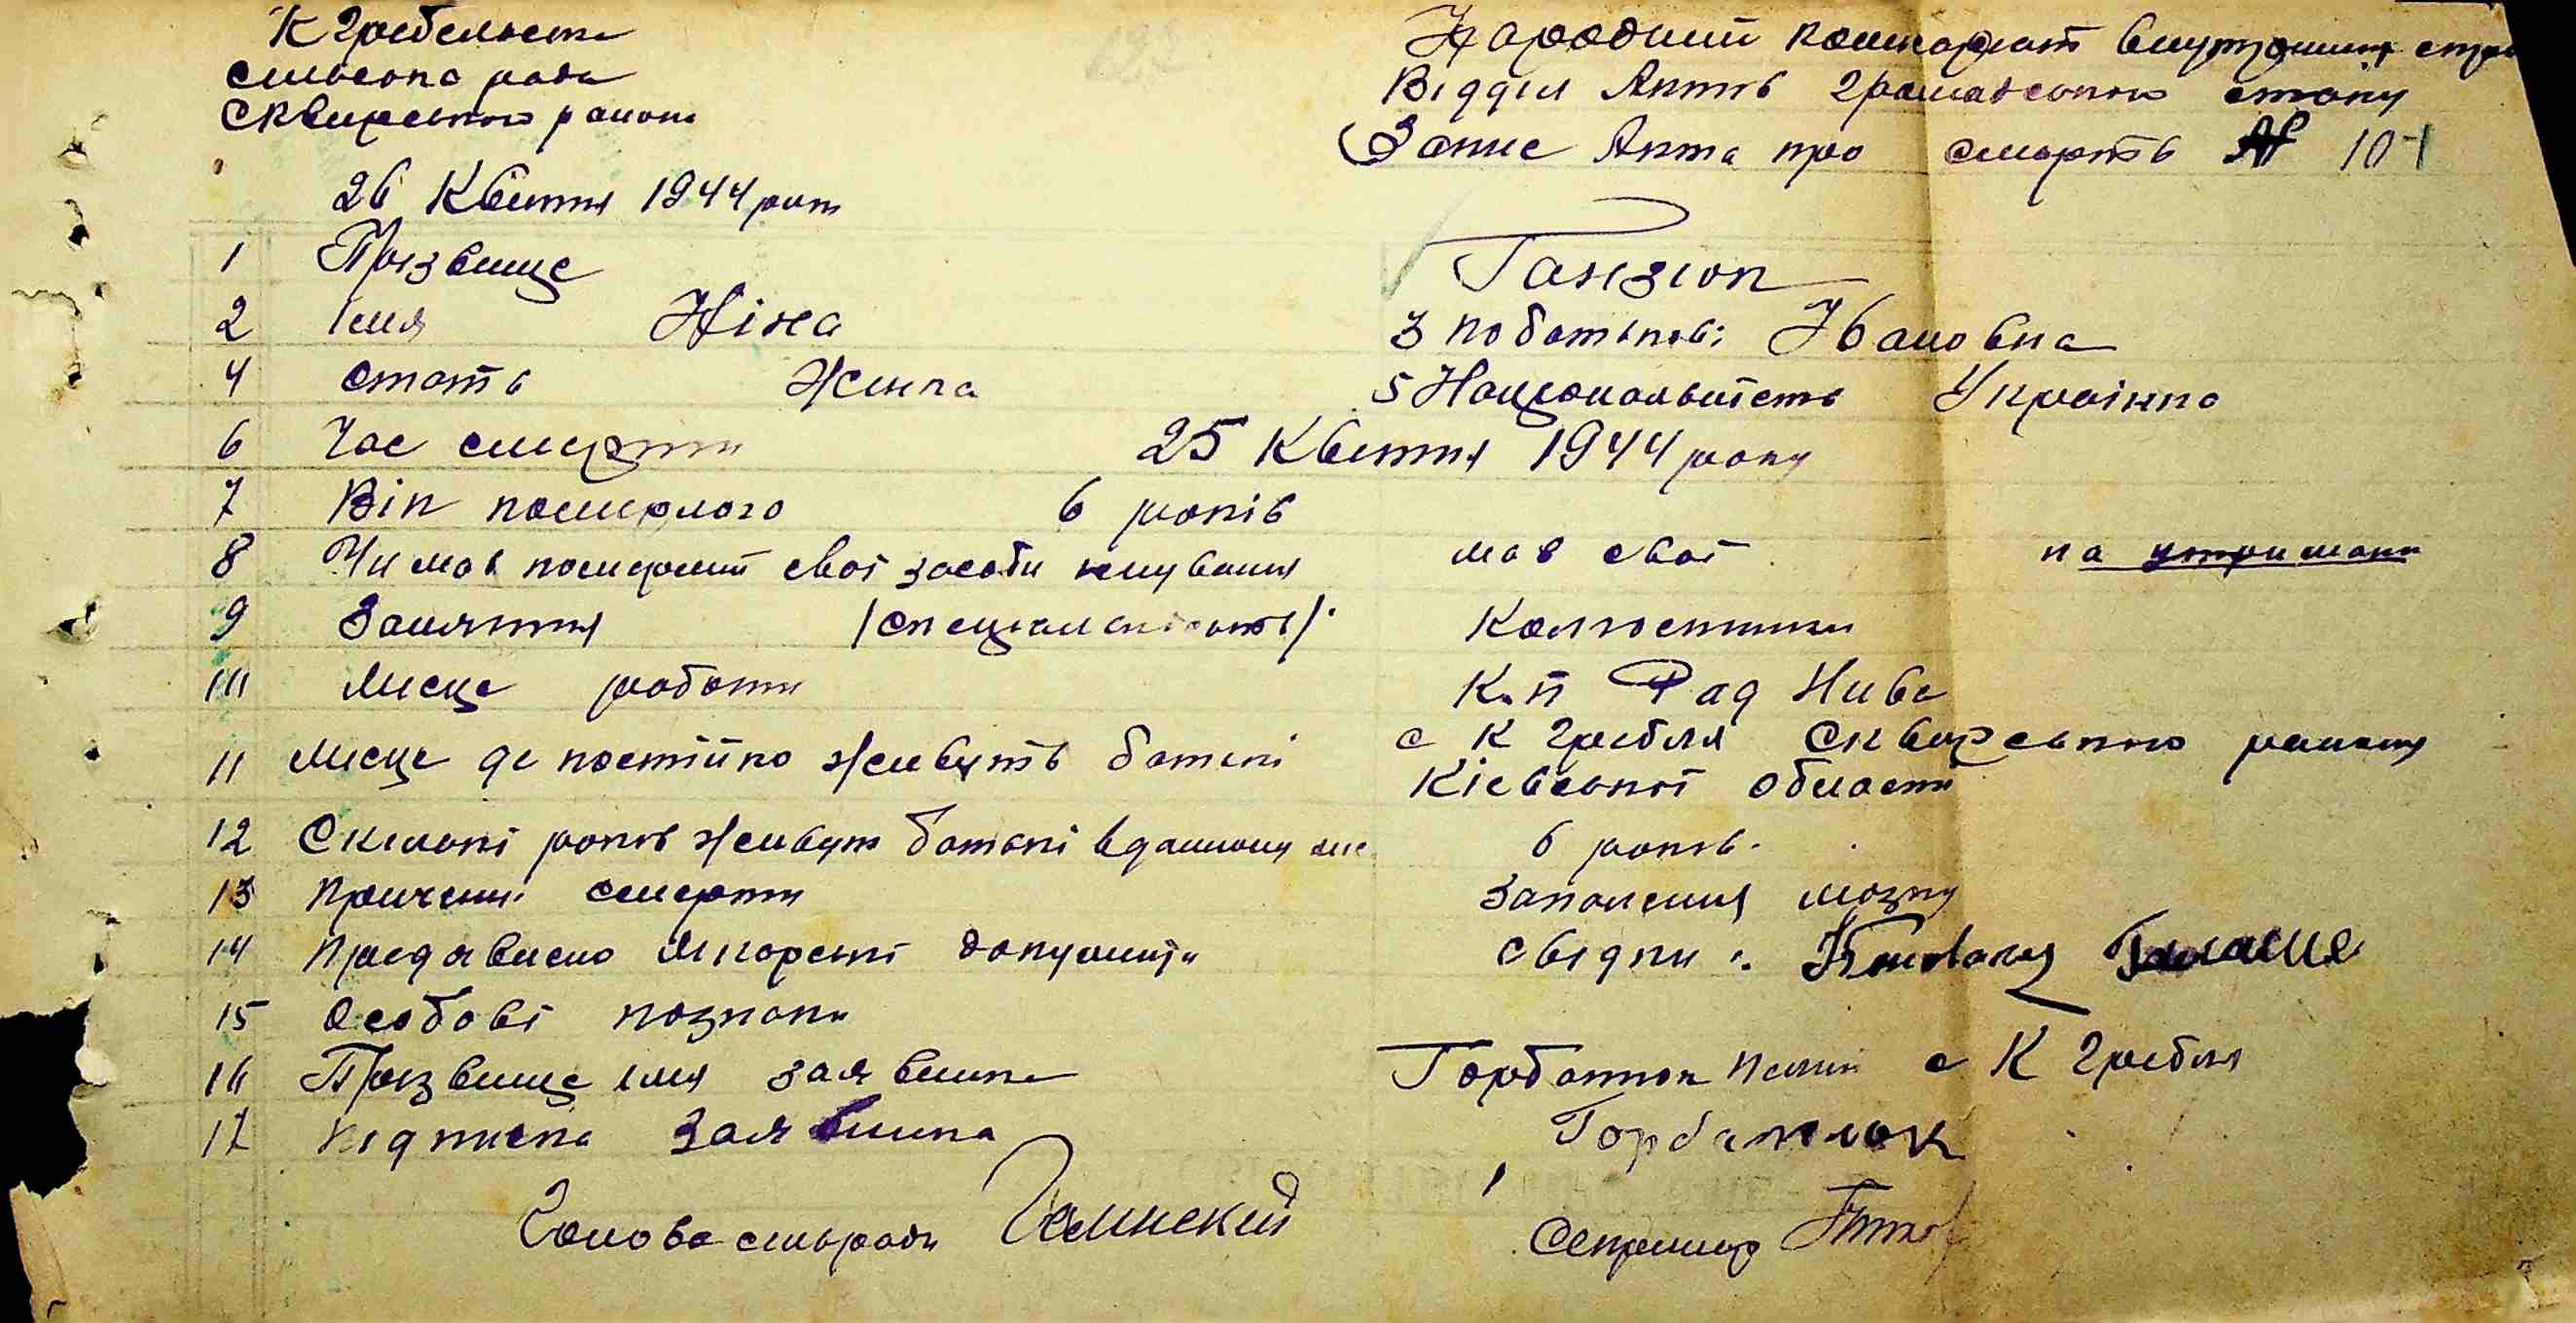 К Гребельська
сільська рада
Сквирського району
Народний комісаріат внутрішніх спра
Відділ Актів громадського стану
Запис Акта про смерть № 10
26 Квітня 1944 рік
1 Прізвище Ганзюк
2 Імя Ніна 3 по батькові: Івановна
4 стать Жінка 5 Національність Українка
6 Час смерти 25 Квітня 1944 року
7 Вік померлого 6 років
8 Чи мав померлий свої засоби існування мав свої на утриманні
9 Заняття (спеціальність) Колгоспники
10 Місце роботи К-п Рад Нива
11 Місце де постійно живуть батькі с К Гребля Сквирського району
Кієвської області
12 Скількі років живут батькі в данному міс 6 років.
13 Причени смерти запалення мозку
14 Предявлено лікарські документи свідки:
15 Особові познаки
16 Прізвище імя заявника Горбатюк с К Гребля
17 Підписка заявника Горбатюк
Голова сільради Галинский Секретар